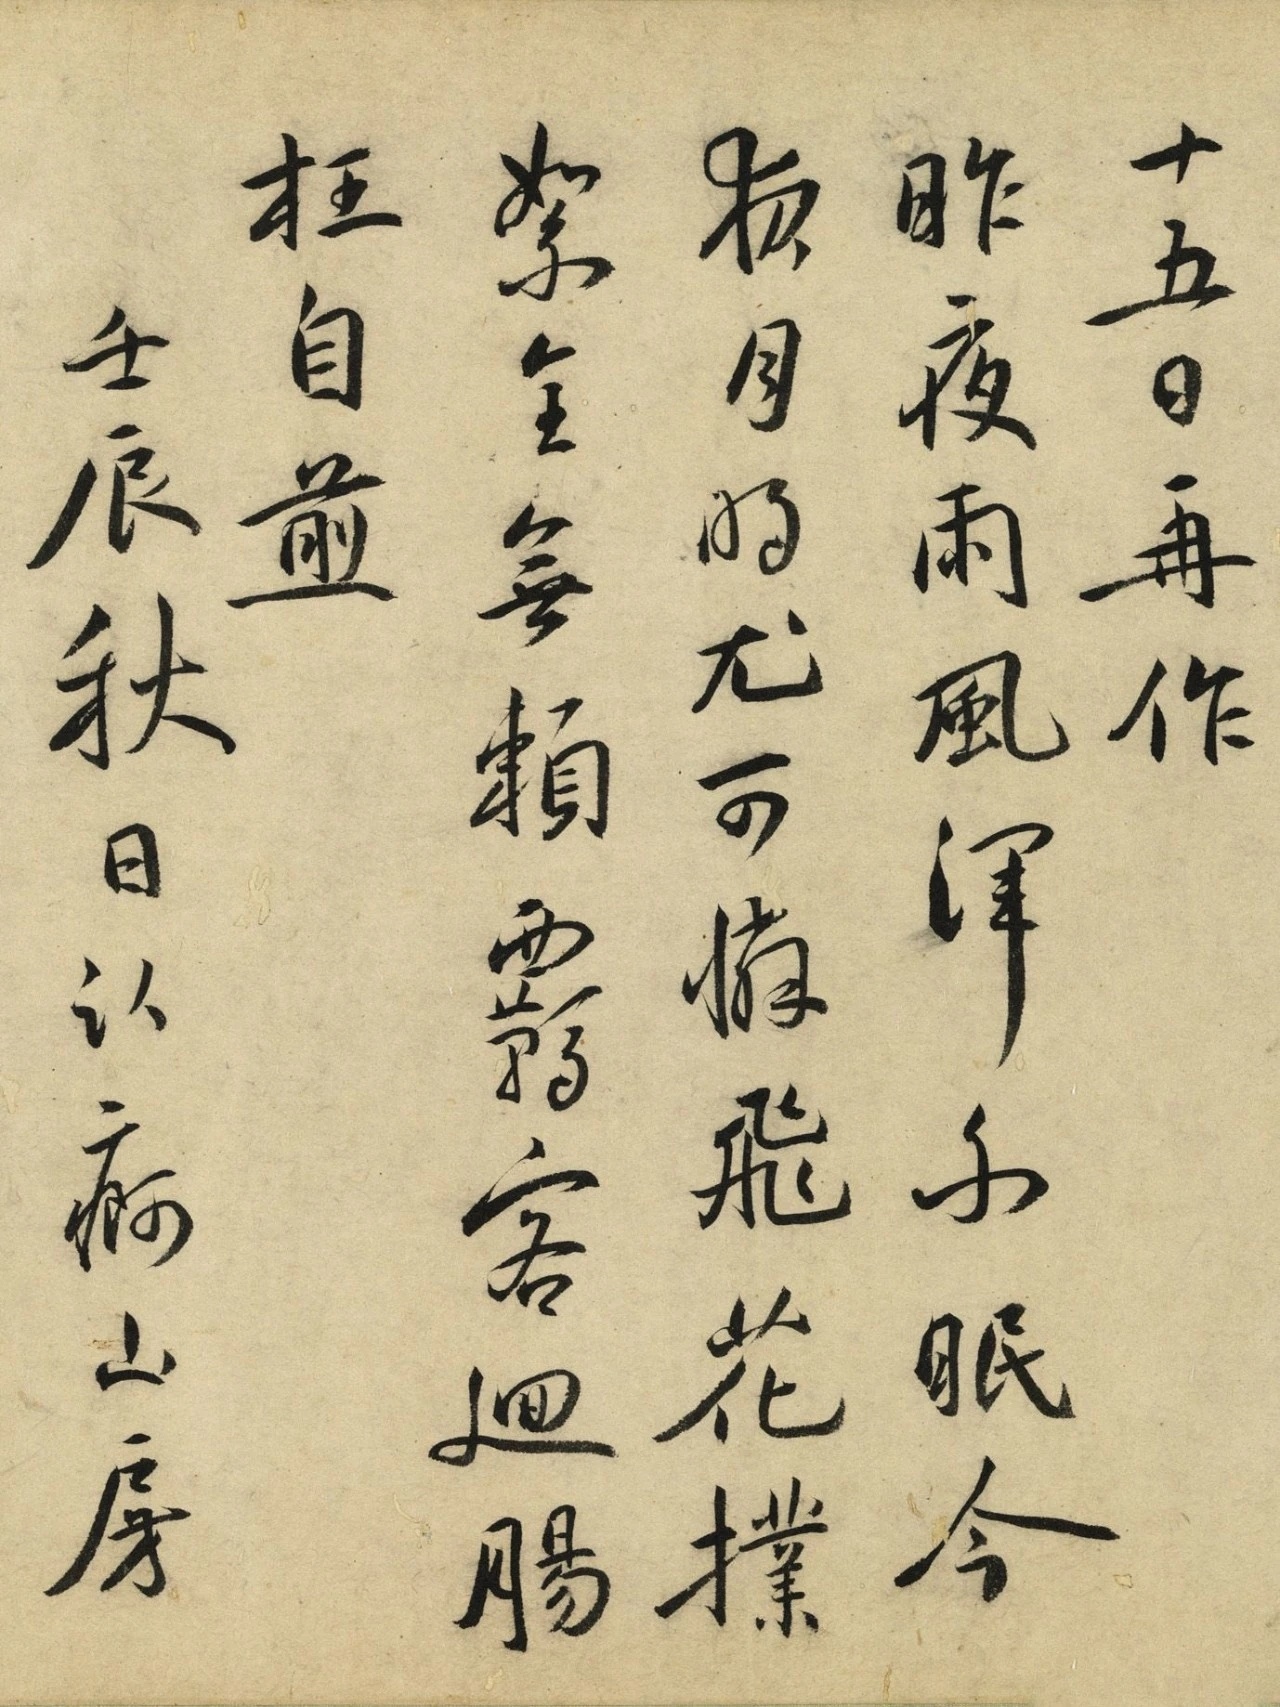 十五日再作
昨夜雨風渾不眠今
夜月明尤可憐飛花撲
絮全無賴覊客迴腸
枉自煎
壬辰秋日山房